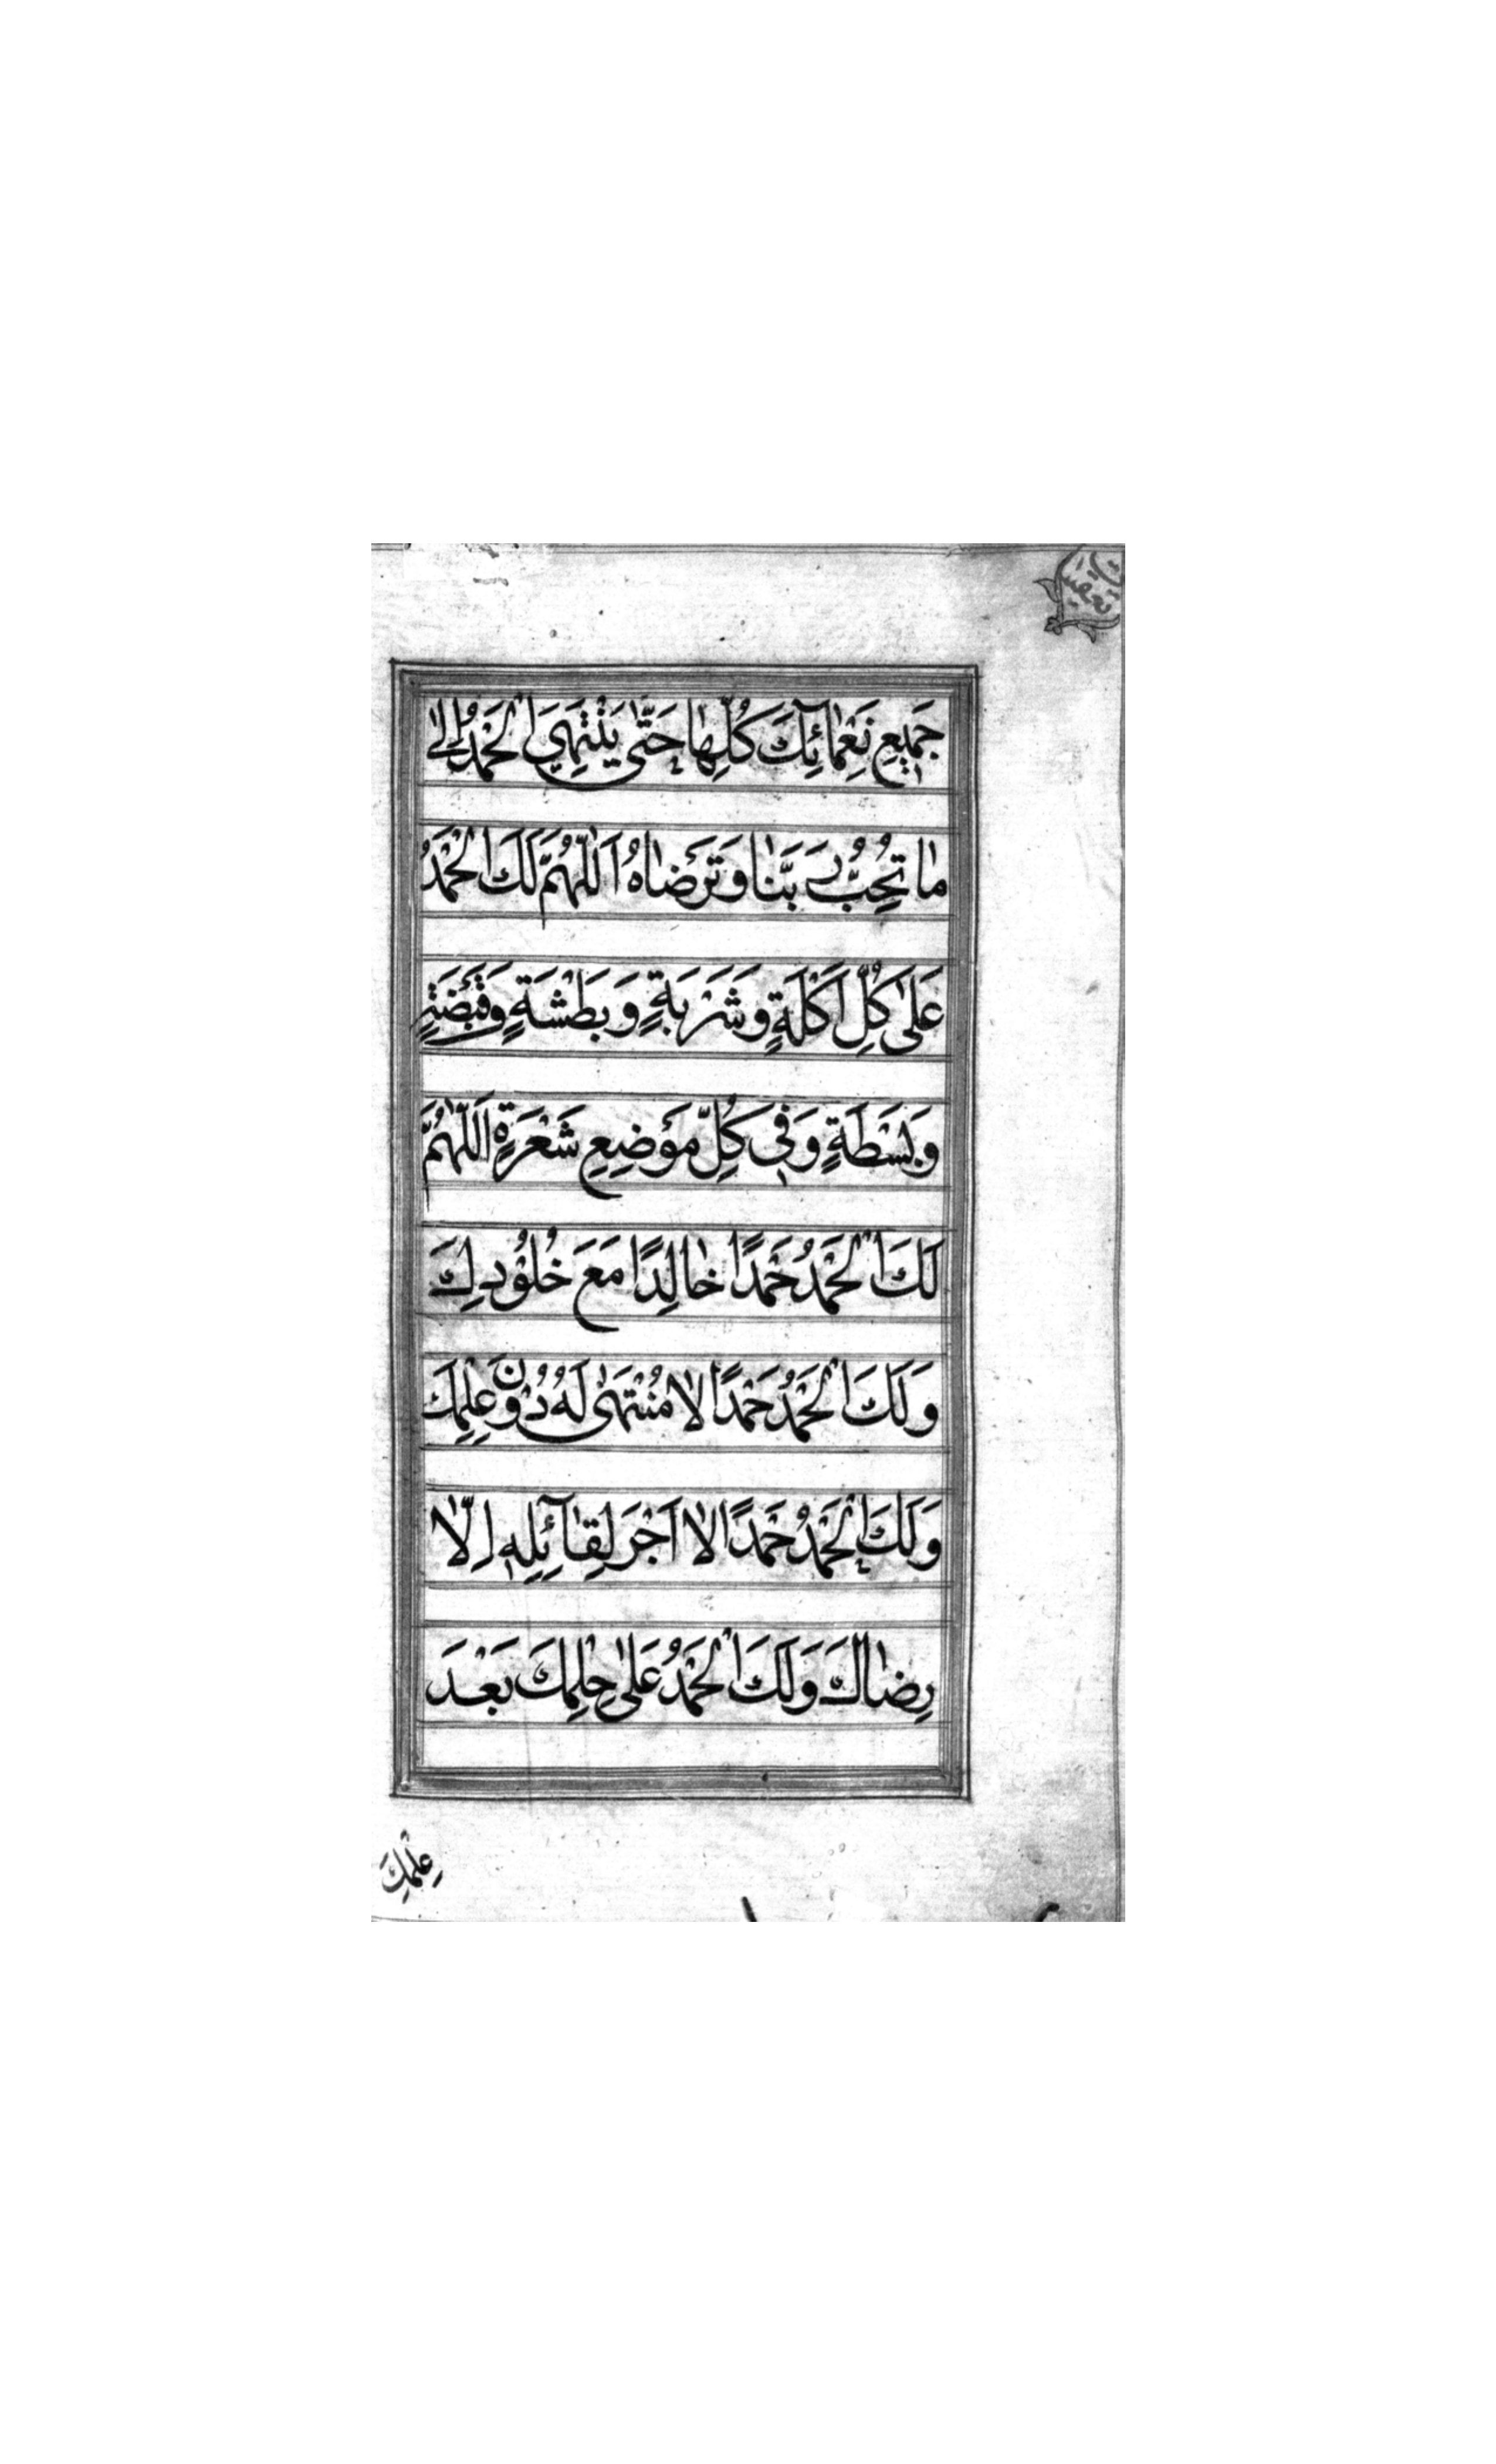 جَمِيعِ نَعْمائِكَ كُلِّها حَتّٰى يَنْتَهِيَ الْحَمْدُ اِلىٰ
ما تُحِبُّ رَبَّنا وَتَرْضاهُ اَللّٰهُمَّ لَكَ الْحَمْدُ
عَلىٰ كُلِّ اَكْلَةٍ وَشَرْبَةٍ وَبَطْشَةٍ وَقَبْضَةٍ
وَبَسْطَةٍ وَفِي كُلِّ مَوْضِعِ شَعْرَةٍ اَللّٰهُمَّ
لَكَ الْحَمْدُ حَمْدًا خالِدًا مَعَ خُلُوْدِكَ
وَلَكَ الْحَمْدُ حَمْدًا لا مُنْتَهىٰ لَهُ دُوْنَ عِلْمِكَ
وَلَكَ الْحَمْدُ حَمْدًا لا اَجْرَ لِقآئِلِهِ اِلّا
رِضاكَ وَلَكَ الْحَمْدُ عَلىٰ حِلْمِكَ بَعْدَ
عِلْمِكَ